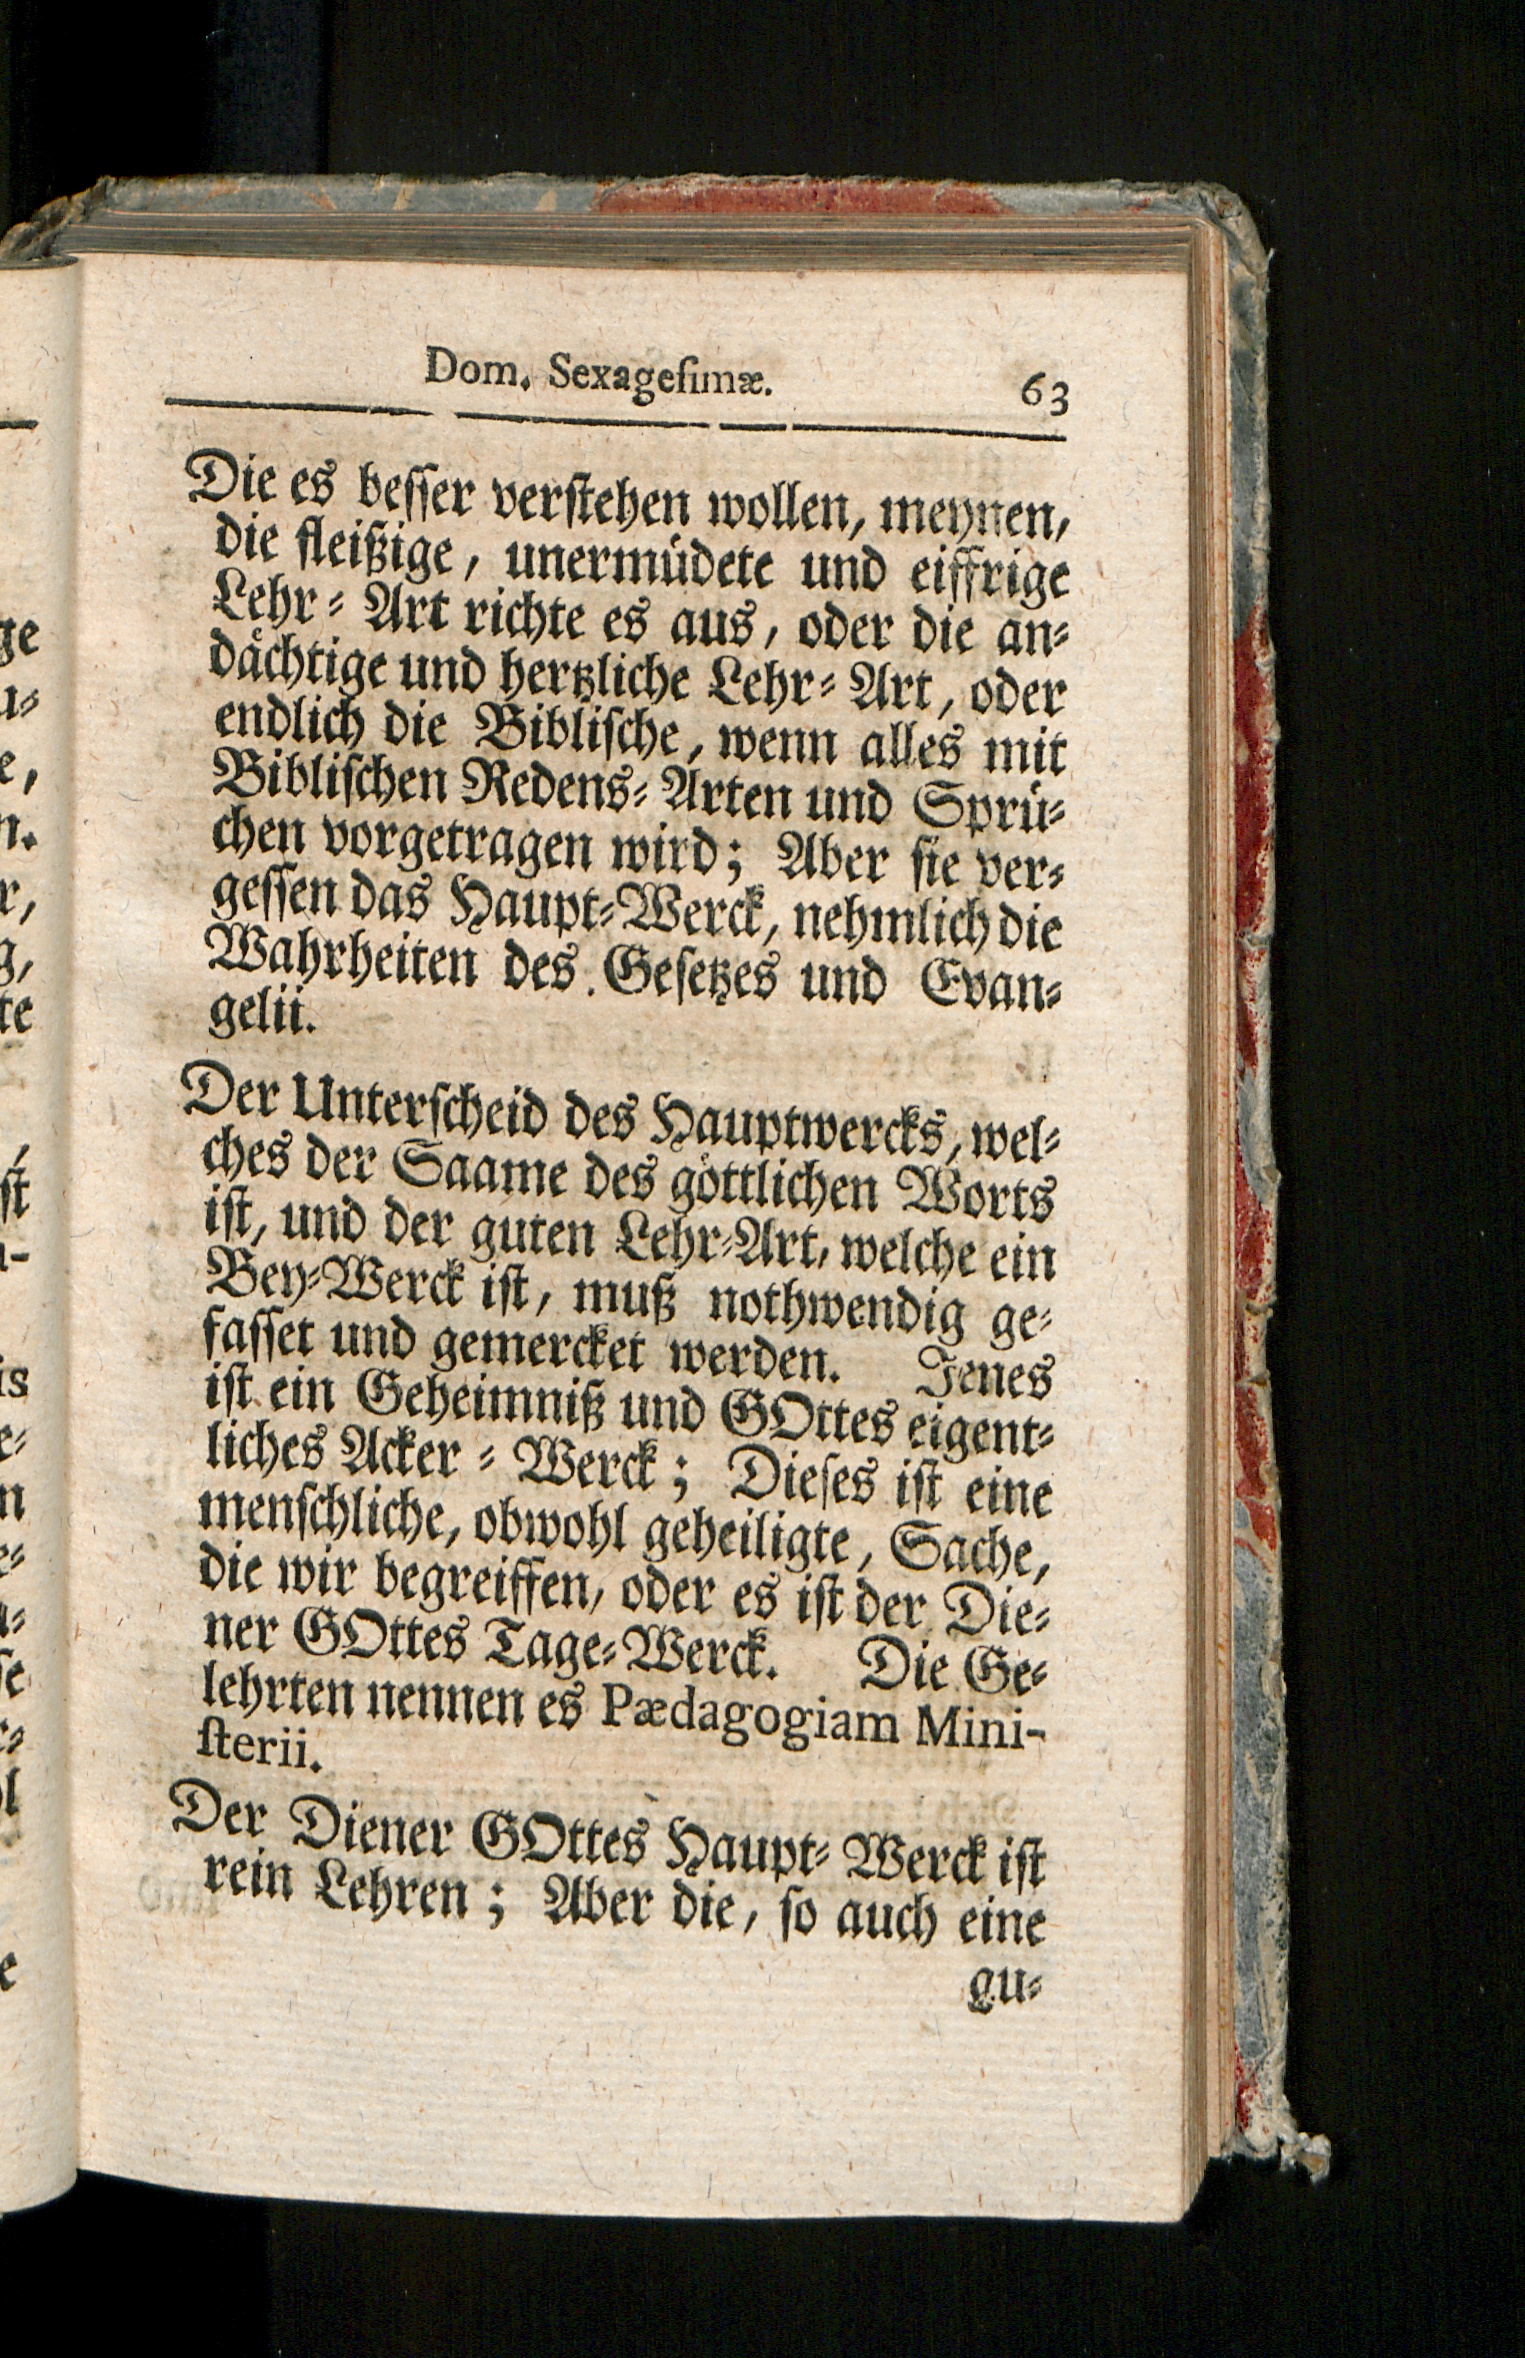 Dom. Sexagesimæ. 63
Die es besser verstehen wollen, meynen,
die fleißige, unermüdete und eiffrige
Lehr-Art richte es aus, oder die an-
dächtige und hertzliche Lehr-Art, oder
endlich die Biblische, wenn alles mit
Biblischen Redens-Arten und Sprü-
chen vorgetragen wird; Aber sie ver-
gessen das Haupt-Werck, nehmlich die
Wahrheiten des Gesetzes und Evan-
gelii.
Der Unterscheid des Hauptwercks, wel-
ches der Saame des göttlichen Worts
ist, und der guten Lehr-Art, welche ein
Bey-Werck ist, muß nothwendig ge-
fasset und gemercket werden. Jenes
ist ein Geheimniß und GOttes eigent-
liches Acker-Werck; Dieses ist eine
menschliche, obwohl geheiligte, Sache,
die wir begreiffen, oder es ist der Die-
ner GOttes Tage-Werck. Die Ge-
lehrten nennen es Pædagogiam Mini-
sterii.
Der Diener GOttes Haupt-Werck ist
rein Lehren; Aber die, so auch eine
gu-